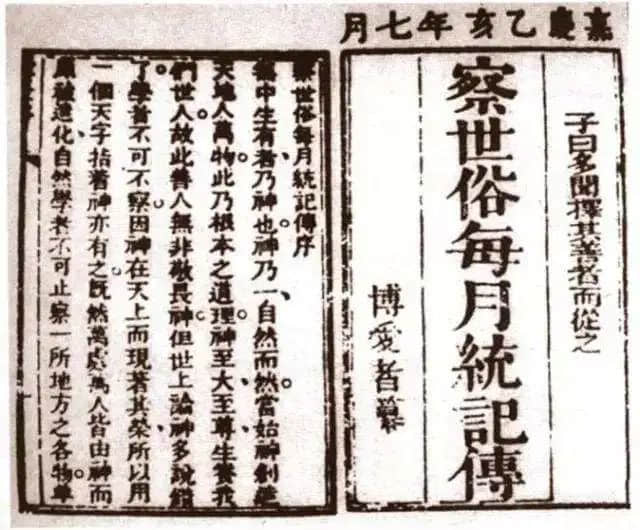 嘉慶乙亥年七月
子曰多聞擇其善者而從之
察世俗每月統記傳
博愛者纂
察世俗每月統記傳序
無中生有者、乃神也。神乃一、自然而然。當始神創造
天地人萬物、此乃根本之道理。神至大至尊、生養我
們世人。故此善人無非敬畏神。但世上論神多說錯
了。學者不可不察。因神在天上、而現著其榮、所以用
一個天字指著神亦有之。既然萬處萬人、皆由神而
原被造化、自然學者不可止察一所地方之各物、單